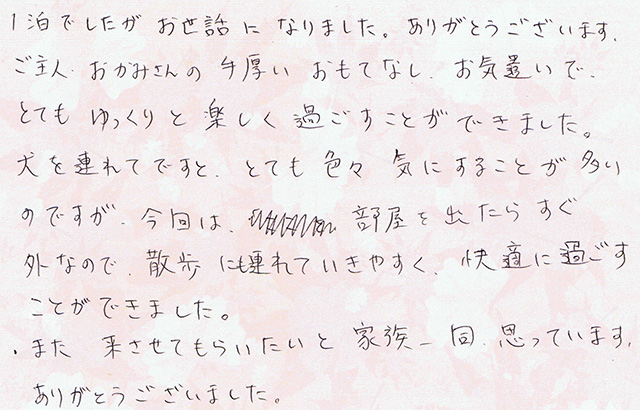 1泊でしたが お世話に なりました。ありがとうございます.
ご主人. おかみさんの 手厚い おもてなし. お気遣いで.
とても ゆっくりと 楽しく 過ごすことが できました。
犬を連れてですと. とても 色々 気にすることが 多い
のですが. 今回は. 部屋を出たらすぐ
外なので. 散歩にも連れていきやすく. 快適に過ごす
ことができました。
. また 来させてもらいたいと 家族一同. 思っています.
ありがとうございました。